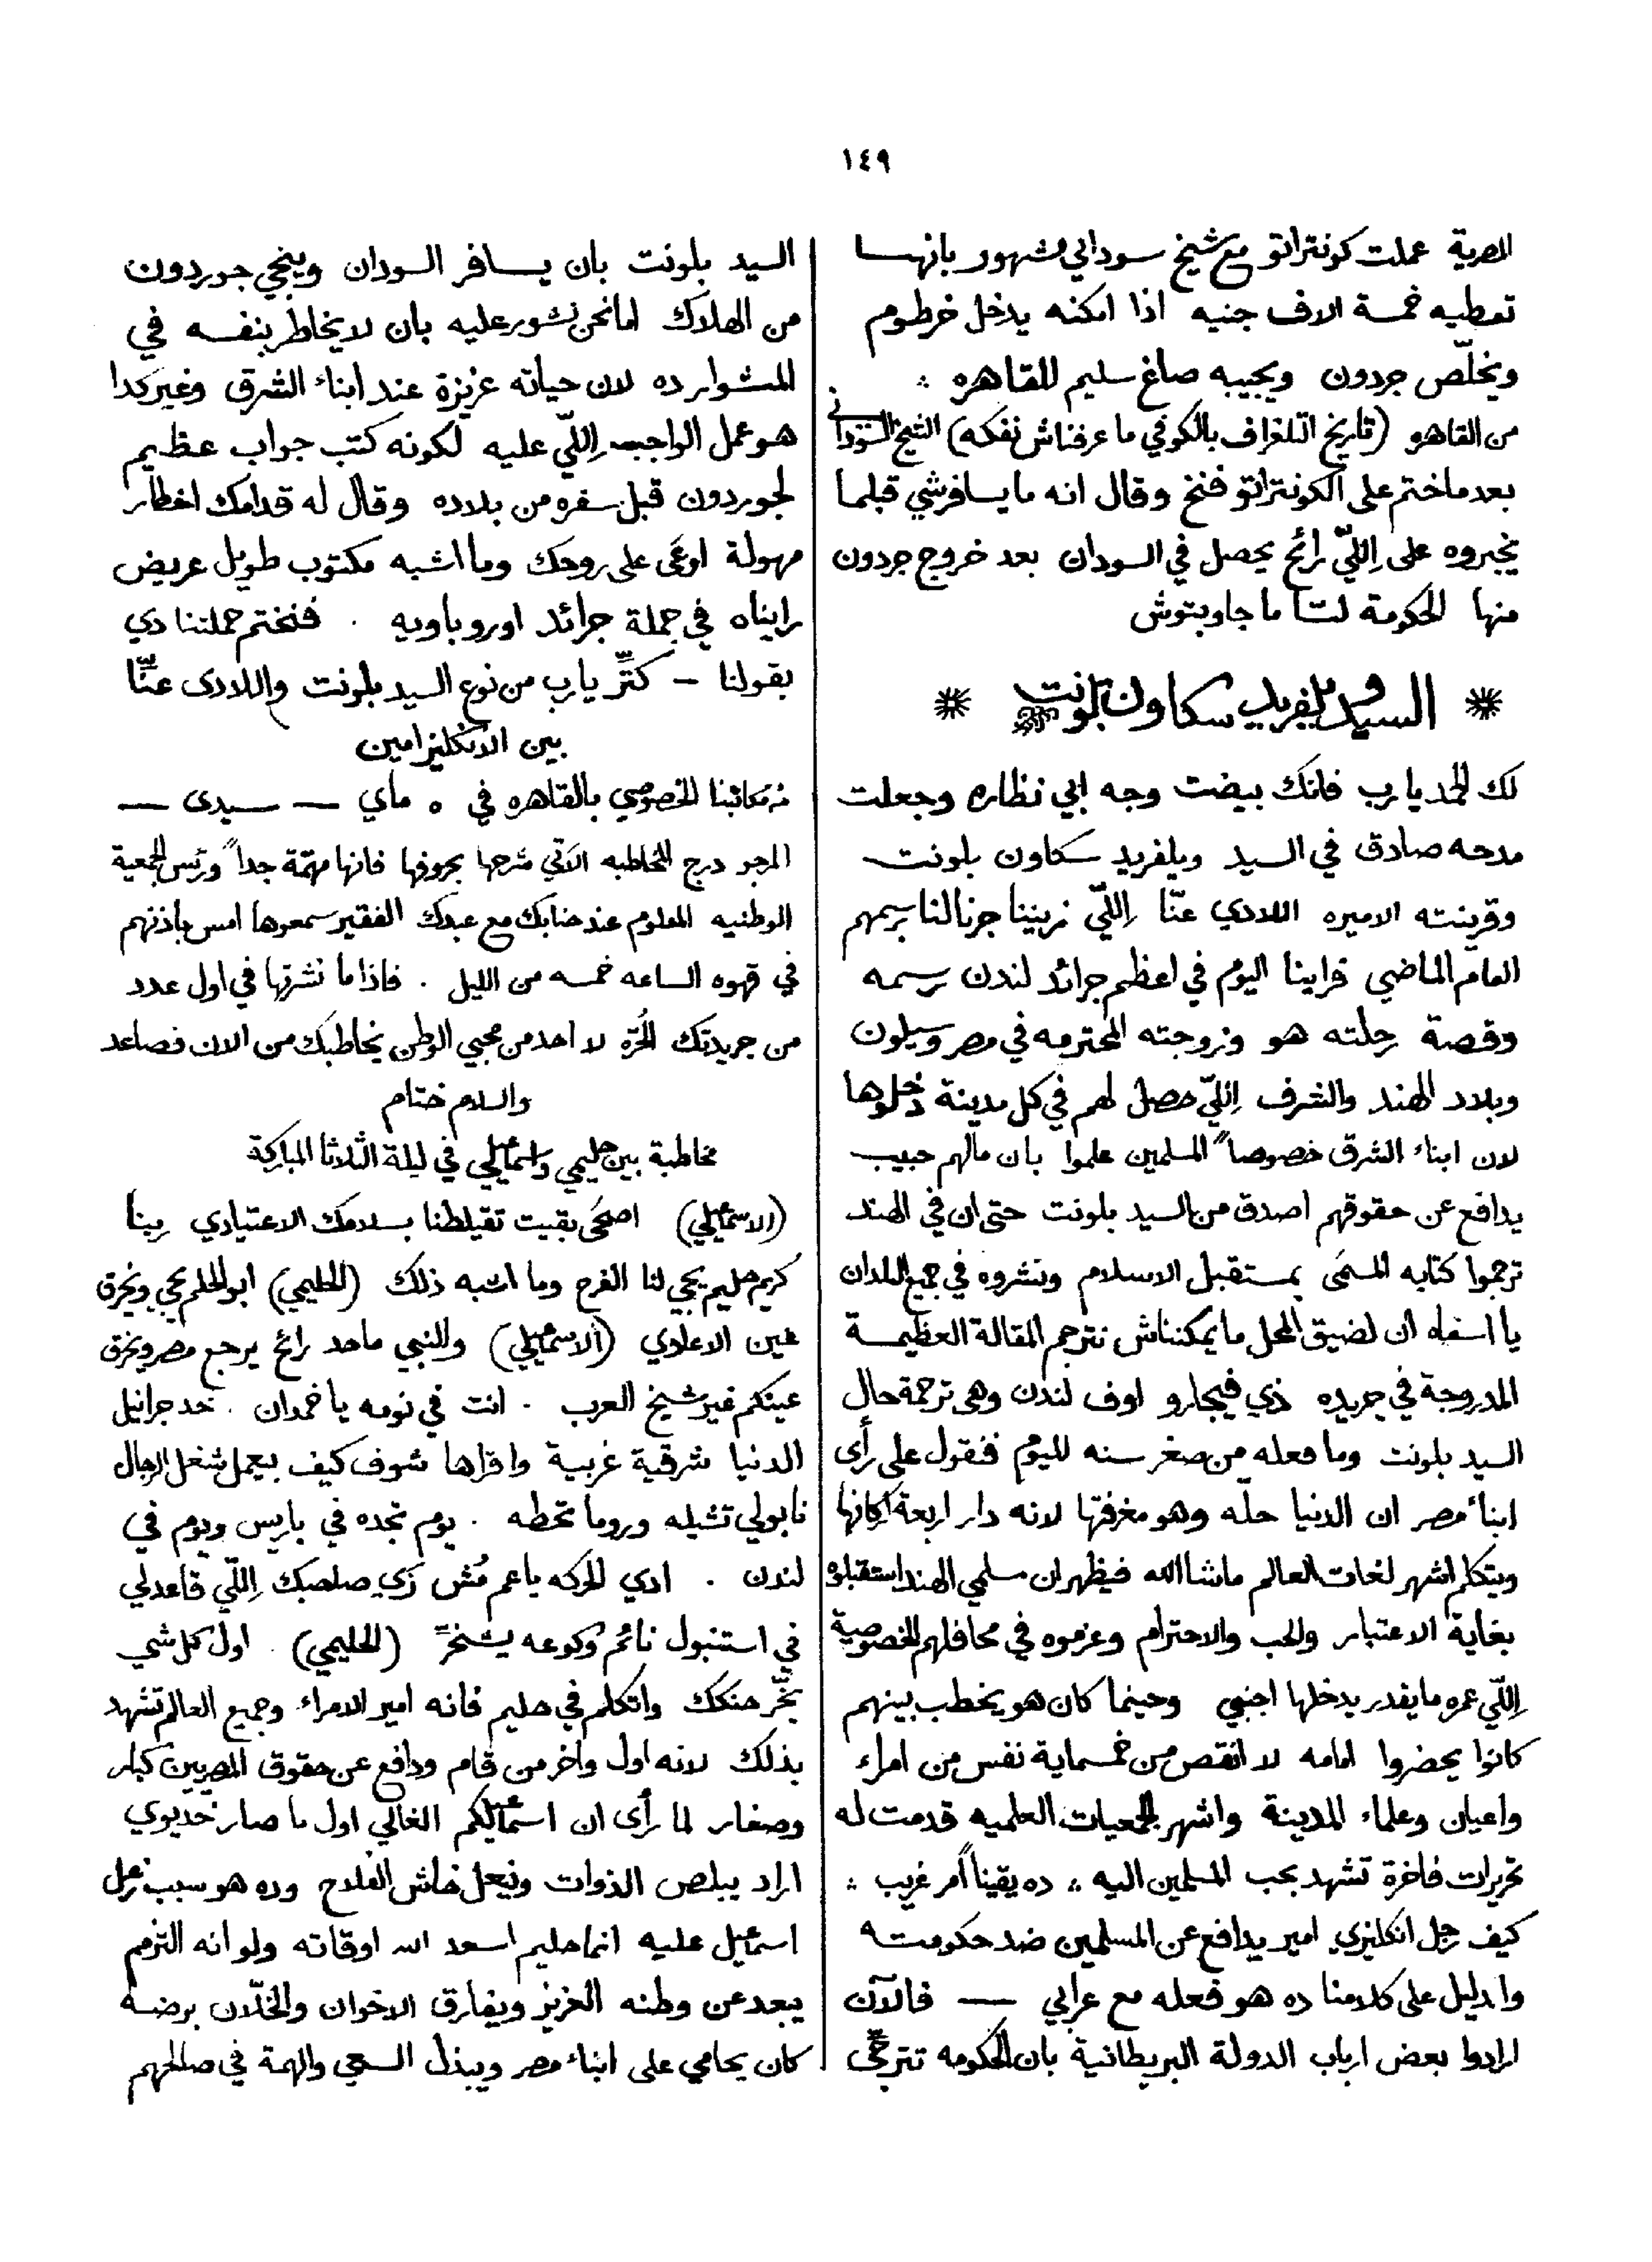 ١٤٩
المصرية عملت كونتراتو مع شيخ سوداني مشهور بانها
تعطيه خمسة الاف جنيه اذا امكنه يدخل خرطوم
ويخلّص جردون ويجيبه صاغ سليم للقاهره ؞
من القاهره (تاريخ التلغراف بالكوفي ما عرفناش نفكه) الشيخ السودانى
بعد ما ختم على الكونتراتو فنخ وقال انه ما يسافرشي قبلما
يخبروه على اِللّي رائح يحصل في السودان بعد خروج جردون
منها الحكومة لسّا ما جاوبتوش
❋ السيد ويلفريد سكاون بلونت ❋
لك الحمد يا رب فانك بيضت وجه ابي نظاره وجعلت
مدحه صادق في السيد ويلفريد سكاون بلونت
وقرينته الاميره اللادي عنّا اِللّي زيننا جرنالنا برسمهم
العام الماضي فراينا اليوم في اعظم جرائد لندن رسمه
وقصة رحلته هو وزوجته المحترمه في مصر وسيلون
وبلاد الهند والشرف اِللّي حصل لهم في كل مدينة دخلوها
لان ابناء الشرق خصوصاً المسلمين علموا بان مالهم حبيب
يدافع عن حقوقهم اصدق من السيد بلونت حتى ان في الهند
ترجموا كتابه المسمَى بمستقبل الاسلام ونشروه في جميع البلدان
يا اسفاه ان لضيق المحل ما يمكنناش نترجم المقالة العظيمة
المدروجة في جريده ذي فيجارو اوف لندن وهى ترجمة حال
السيد بلونت وما فعله من صغر سنه لليوم فنقول على رأى
ابناء مصر ان الدنيا حلّه وهو مغرفتها لانه دار اربعة اركانها
ويتكلم اشهر لغات العالم ماشاالله فيظهر ان مسلمي الهند استقبلوه
بغاية الاعتبار والحب والاحترام وعزموه في محافلهم الخصوصية
اِللّي عمره ما يقدر يدخلها اجنبي وحينما كان هو يخطب بينهم
كانوا يحضروا امامه لا انقص من خمسماية نفس من امراء
واعيان وعلماء المدينة واشهر الجمعيات العلميه قدمت له
تحريرات فاخرة تشهد بحب المسلمين اليه ؞ ده يقيناً أمر غريب ؞
كيف رجل انكليزي امير يدافع عن المسلمين ضد حكومته
وا دليل على كلامنا ده هو فعله مع عرابي — فالآن
ارادوا بعض ارباب الدولة البريطانية بان الحكومه تترجّى
السيد بلونت بان يسافر السودان وينجي جوردون
من الهلاك اما نحن نشور عليه بان لا يخاطر بنفسه في
المشوار ده لان حياته عزيزة عند ابناء الشرق وغير كدا
هو عمل الواجب اِللّي عليه لكونه كتب جواب عظيم
لجوردون قبل سفره من بلاده وقال له قدامك اخطار
مهولة اوعَى على روحك وما اشبه مكتوب طويل عريض
رايناه في جملة جرائد اوروباويه . فنختم جملتنا دي
بقولنا — كتِّر يا رب من نوع السيد بلونت واللادى عنّا
بين الانكليز امين
من مكاتبنا الخصوصي بالقاهره في ٥ ماي — سيدى —
المرجو درج المخاطبه الآتي شرحها بحروفها فانها مهمّة جداً ورئيس الجمعية
الوطنيه المعلوم عند جنابك مع عبدك الفقير سمعوها امس باذنهم
في قهوه الساعه خمسه من الليل . فاذا ما نشرتها في اول عدد
من جريدتك الحُرّة لا احد من محبي الوطن يخاطبك من الان فصاعد
والسلام ختام
مخاطبة بين حليمي واسماعيلي في ليلة الثلاثا المباركة
(الاسماعيلي) اصحَى بقيت تقيلطنا بسلامك الاعتيادي ربنا
كريم حليم يجي لنا الفرج وما اشبه ذلك (الحليمي) ابو الحلم يجي ويخرق
عين الاعادي (الاسماعيلي) والنبي ماحد رائح يرجع مصر ويخرق
عينكم غير شيخ العرب . انت في نومه يا خمدان . خد جرانيل
الدنيا شرقية غربية واقراها شوف كيف بيعمل شغل الرجال
نابولي تشيله وروما تحطه . يوم تجده في باريس ويوم في
لندن . ادي الحركه يا عم مُش زَي صاحبك اِللّي قاعد لي
في استنبول نائم وكوعه يشخرّ (الحليمي) . اول كل شي
بخّر حنكك واتكلم في حليم فانه امير الامراء وجميع العالم تشهد
بذلك لانه اول واخر من قام ودافع عن حقوق المصريين كبار
وصغار لما رأى ان اسماعيلكم الغالي اول ما صار خديوي
اراد يبلص الذوات وينحل خاش الفلاح وده هو سبب زعل
اسماعيل عليه انما حليم اسعد الله اوقاته ولو انه التزم
يبعد عن وطنه العزيز ويفارق الاخوان والخلّان برضه
كان يحامي على ابناء مصر ويبذل السعي والهمة في صالحهم